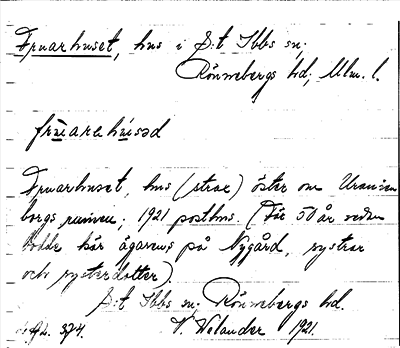 Fruarhuset, hus i S:t Ibbs sn;
Rönnebergs hd; Mlm. l.
frúarehúsəd
Fruarhuset, hus (strax) öster om Uranien
borgs ruiner; 1921 posthus. (För 50 år sedan
bodde här ägarens på Nygård, systrar
och systerdotter).
S:t Ibbs sn; Rönnebergs hd.
374. V. Welander 1921.